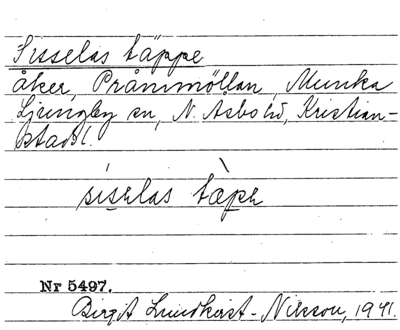 Sisselas täppe
åker, Prammöllan, Munka
Ljungby sn, N. Åsbo hd, Kristian-
stads l.
sisəlas tàpə
Nr 5497.
Birgit Lundkvist-Nilsson, 1941.